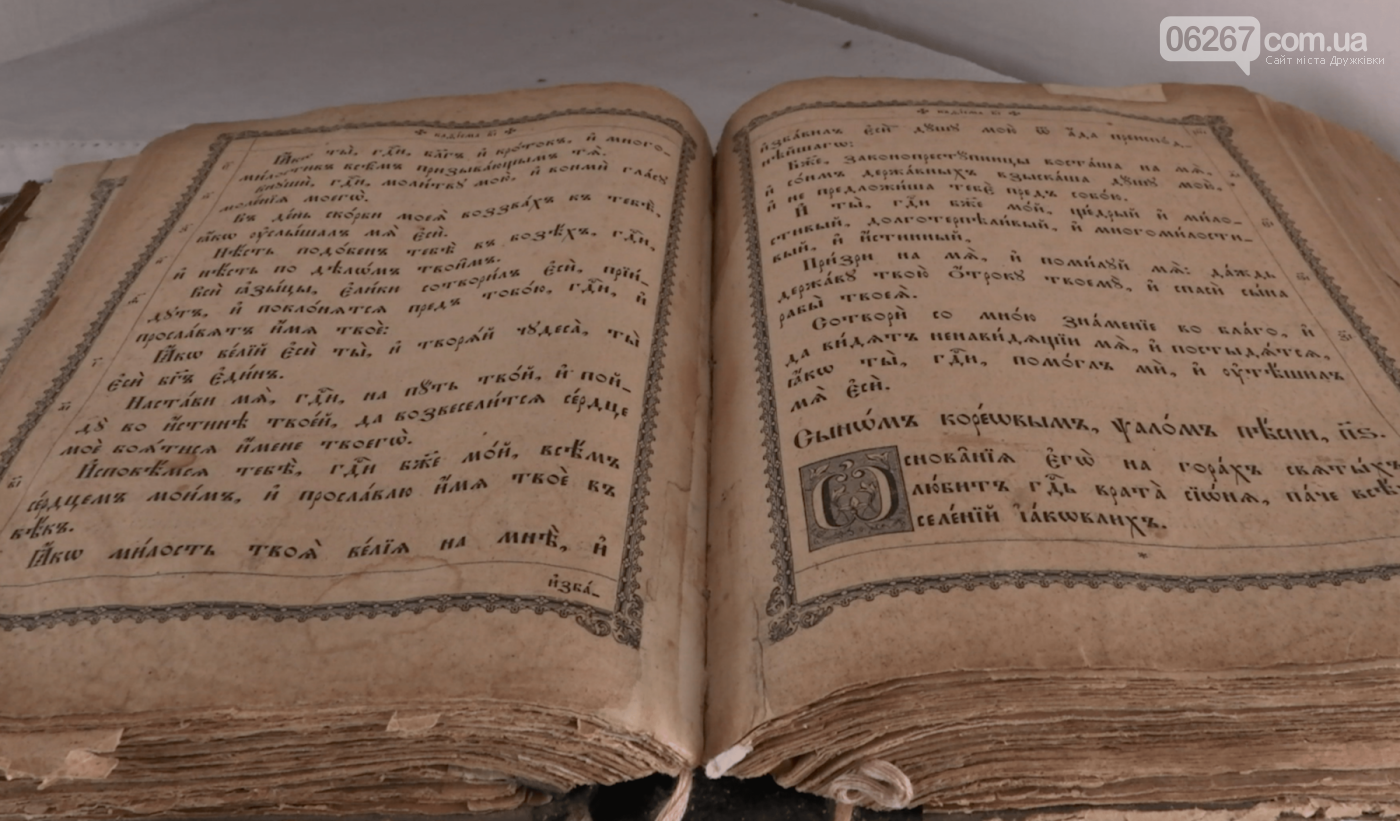 06267.com.ua
Сайт міста Дружківки
Ꙗ҆́кѡ ты̀, гдⷭ҇и, бл҃гъ и҆ кро́токъ, и҆ мно́го-
ми́лостивъ всѣ̑мъ призыва́ющымъ тѧ̀.
Внꙋшѝ, гдⷭ҇и, моли́твꙋ мою̀, и҆ вонмѝ гла́сꙋ
моле́нїѧ моегѡ̀.
Въ де́нь ско́рби моеѧ̀ воззва́хъ къ тебѣ̀,
ꙗ҆́кѡ ᲂу҆слы́шалъ мѧ̀ є҆сѝ.
Нѣ́сть подо́бенъ тебѣ̀ въ бозѣ́хъ, гдⷭ҇и,
и҆ нѣ́сть по дѣлѡ́мъ твои̑мъ.
Всѝ ꙗ҆зы́цы, є҆ли́ки сотвори́лъ є҆сѝ, прїи́-
дꙋтъ, и҆ покло́нѧтсѧ пред̾ тобо́ю, гдⷭ҇и, и҆
просла́вѧтъ и҆́мѧ твоѐ:
Ꙗ҆́кѡ ве́лїй є҆сѝ ты̀, и҆ творѧ́й чꙋдеса̀, ты̀
є҆сѝ бг҃ъ є҆ди́нъ.
Наста́ви мѧ̀, гдⷭ҇и, на пꙋ́ть тво́й, и҆ пой-
дꙋ̀ во и҆́стинѣ твое́й, да возвесели́тсѧ се́рдце
моѐ боѧ́тисѧ и҆́мене твоегѡ̀.
И҆сповѣ́мсѧ тебѣ̀, гдⷭ҇и бж҃е мо́й, всѣ́мъ
се́рдцемъ мои́мъ, и҆ просла́влю и҆́мѧ твоѐ въ
вѣ́къ.
Ꙗ҆́кѡ ми́лость твоѧ̀ ве́лїѧ на мнѣ̀, и҆
и҆зба́-
и҆зба́вилъ є҆сѝ дꙋ́шꙋ мою̀ ѿ а҆́да преиспо́д-
нѣйшагѡ:
Бж҃е, законопрестꙋ̑пницы воста́ша на мѧ̀,
и҆ со́нмъ держа́вныхъ взыска́ша дꙋ́шꙋ мою̀,
и҆ не предложи́ша тебѐ пред̾ собо́ю.
И҆ ты̀, гдⷭ҇и бж҃е мо́й, ще́дрый и҆ ми́ло-
стивый, долготерпѣли́вый, и҆ многоми́лости-
вый, и҆ и҆́стинный,
При́зри на мѧ̀, и҆ поми́лꙋй мѧ̀: да́ждь
держа́вꙋ твою̀ ѻ҆́трокꙋ твоемꙋ̀, и҆ спасѝ сы́на
рабы̀ твоеѧ̀.
Сотворѝ со мно́ю зна́менїе во бла́го, и҆
да ви́дѧтъ ненави́дѧщїи мѧ̀, и҆ постыдѧ́тсѧ,
ꙗ҆́кѡ ты̀, гдⷭ҇и, помо́глъ мѝ, и҆ ᲂу҆тѣ́шилъ
мѧ̀ є҆сѝ.
Сынѡ́мъ коре́ѡвымъ, ѱало́мъ пѣ́сни, п҃ѕ.
Ѡ҆снова̑нїѧ є҆гѡ̀ на гора́хъ свѧты́хъ
лю́битъ гдⷭ҇ь врата̀ сїѡ̑нѧ, па́че всѣ́хъ
селе́нїй і҆а́кѡвлихъ.